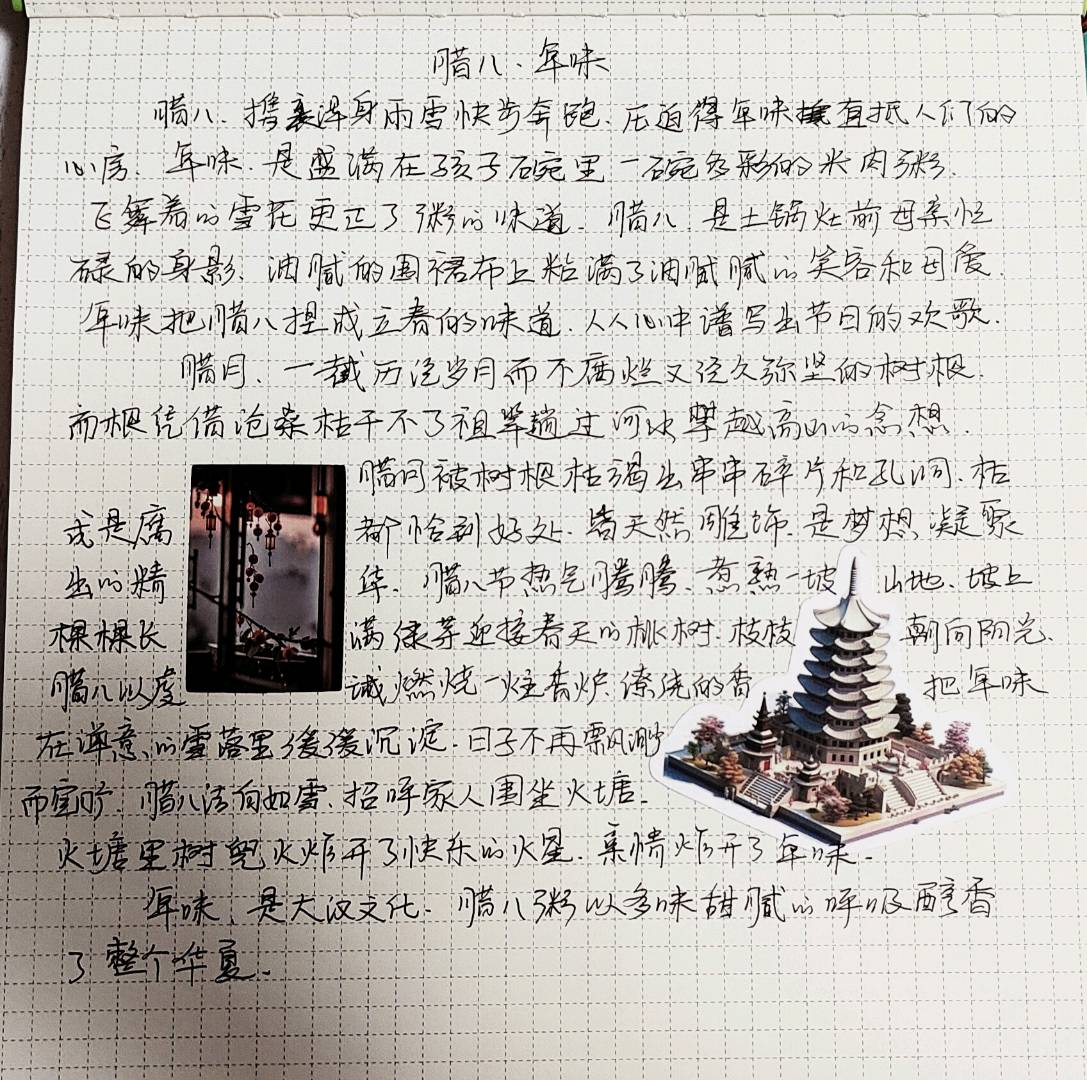 腊八、年味
腊八、携裹浑身雨雪快步奔跑、压迫得年味直抵人们的
心房、年味、是盛满在孩子碗里一碗多彩的米肉粥、
飞舞着的雪花更正了粥的味道、腊八、是土锅灶前母亲忙
碌的身影、油腻的围裙布上粘满了油腻腻的笑容和母爱、
年味把腊八捏成立春的味道、人人心中谱写出节日的欢歌、
腊月、一截历经岁月而不腐烂又经久弥坚的树根、
而根凭借沧桑枯干不了祖辈趟过河水攀越高山的念想、
腊月被树根枯竭出串串碎片和孔洞、枯
或是腐 都恰到好处、皆天然雕饰、是梦想凝聚
出的精 华、腊八节热气腾腾、惹熟一坡 山地、坡上
棵棵长 满绿芽迎接春天的桃树、枝枝 朝向阳光、
腊八以虔 诚燃烧一炷香炉、缭绕的香 把年味
在禅意的雪落里缓缓沉淀、日子不再飘渺
而宽旷、腊八洁白如雪、招呼家人围坐火塘、
火塘里树兜火炸开了快乐的火星、亲情炸开了年味、
年味、是大汉文化、腊八粥以多味甜腻的呼吸醇香
了整个华夏、